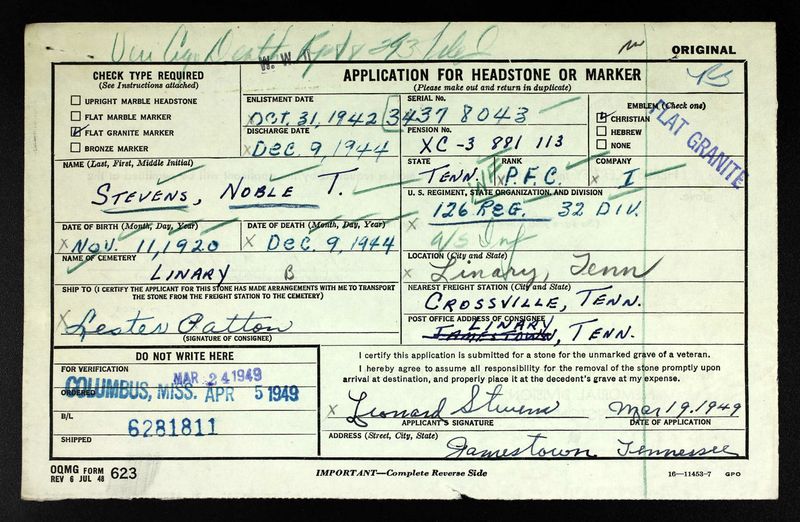 W. W.
ORIGINAL
CHECK TYPE REQUIRED
(See Instructions attached)
UPRIGHT MARBLE HEADSTONE
FLAT MARBLE MARKER
FLAT GRANITE MARKER
BRONZE MARKER
APPLICATION FOR HEADSTONE OR MARKER
(Please make out and return in duplicate)
ENLISTMENT DATE
OCT. 31, 1942
SERIAL No.
3437 8043
DISCHARGE DATE
DEC. 9, 1944
PENSION No.
XC-3 881 113
EMBLEM (Check one)
CHRISTIAN
HEBREW
NONE
FLAT GRANITE
NAME (Last, First, Middle Initial)
STEVENS, NOBLE T.
STATE
TENN.
RANK
P.F.C.
COMPANY
I
U. S. REGIMENT, STATE ORGANIZATION, AND DIVISION
126 REG. 32 DIV.
Inf
DATE OF BIRTH (Month, Day, Year)
X NOV. 11, 1920
DATE OF DEATH (Month, Day, Year)
X DEC. 9, 1944
NAME OF CEMETERY
LINARY B
LOCATION (City and State)
X Linary, Tenn
SHIP TO (I CERTIFY THE APPLICANT FOR THIS STONE HAS MADE ARRANGEMENTS WITH ME TO TRANSPORT
THE STONE FROM THE FREIGHT STATION TO THE CEMETERY)
X Lester Patton
(SIGNATURE OF CONSIGNEE)
NEAREST FREIGHT STATION (City and State)
CROSSVILLE, TENN.
POST OFFICE ADDRESS OF CONSIGNEE
LINARY
JAMESTOWN, TENN.
DO NOT WRITE HERE
FOR VERIFICATION
MAR 24 1949
ORDERED
COLUMBUS, MISS. APR 5 1949
B/L
6281811
SHIPPED
I certify this application is submitted for a stone for the unmarked grave of a veteran.
I hereby agree to assume all responsibility for the removal of the stone promptly upon
arrival at destination, and properly place it at the decedent's grave at my expense.
X Leonard Stevens
Mar 19. 1949
APPLICANT'S SIGNATURE
DATE OF APPLICATION
ADDRESS (Street, City, State)
Jamestown Tennessee
OQMG FORM 623
REV 6 JUL 48
IMPORTANT—Complete Reverse Side
16—11453-7 GPO